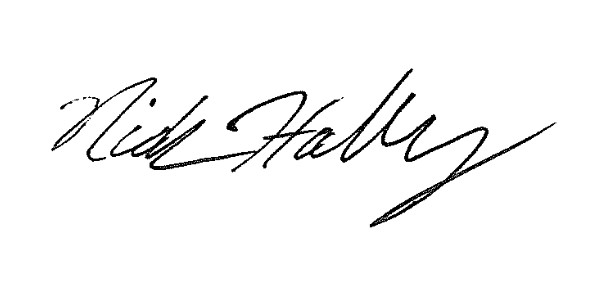 Nick Hally